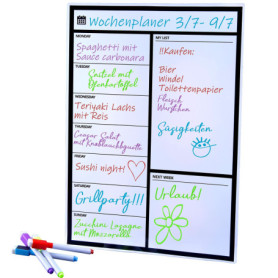 Wochenplaner 3/7- 9/7
MONDAY
Spaghetti mit
Sauce carbonara
TUESDAY
Schnitzel mit
Ofenkartoffel
WEDNESDAY
Teriyaki Lachs
mit Reis
THURSDAY
Caesar Salat
mit Knoblauchbaguette
FRIDAY
Sushi night!
SATURDAY
Grillparty!!!
SUNDAY
Zucchini Lasagne
mit Mozzarella
MY LIST
!!Kaufen:
Bier
Windel
Toilettenpapier
Fleisch
Würstchen
Süsigkeiten
NEXT WEEK
Urlaub!